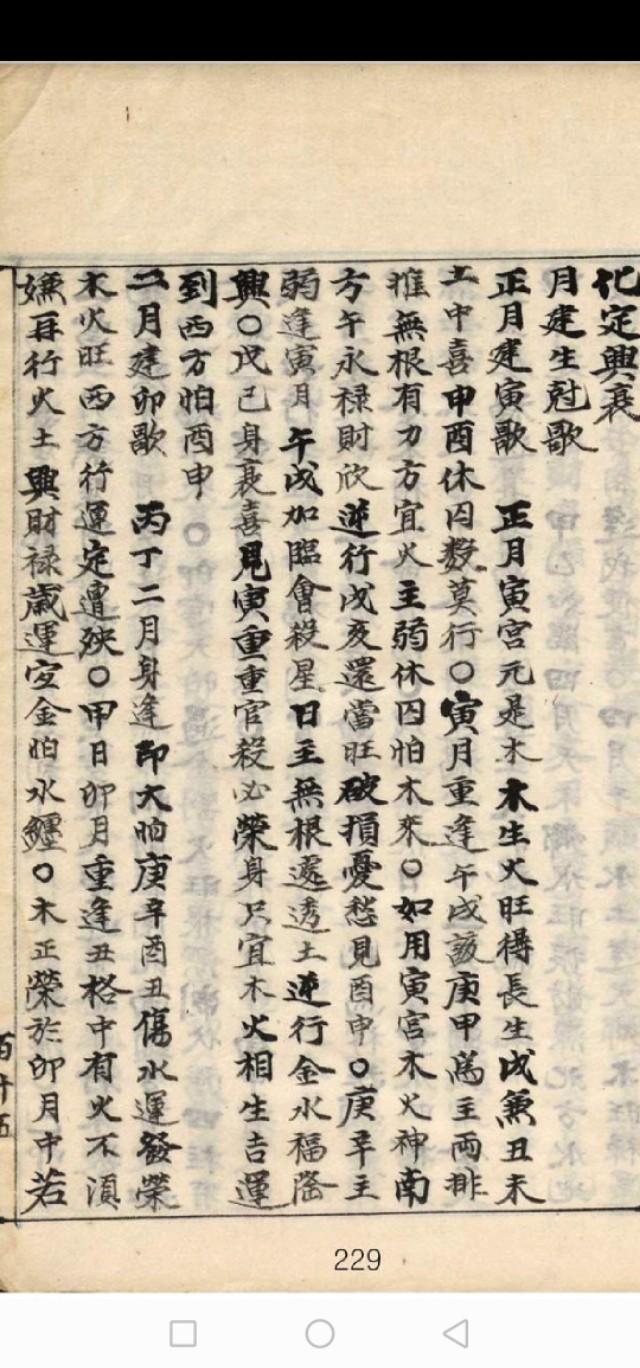 化定興衰
月建生尅歌
正月建寅歌　正月寅宮元是木木生火旺得長生戌兼丑未
土中喜申酉休囚数莫行○寅月重逢午戌該庚甲為主両排
推無根有力方宜火主弱休囚怕木來○如用寅宮木火神南
方午永禄財欣逆行戌亥還當旺破損憂愁見酉申○庚辛主
弱逢寅月午戌加臨會殺星日主無根遇透土逆行金水福隆
興○戊己身衰喜見寅重重官殺必榮身只宜木火相生吉運
到西方怕酉申
二月建卯歌　丙丁二月身逢印大怕庚辛酉丑傷水運發榮
木火旺西方行運定遭殃○甲日卯月重逢丑格中有火不湏
嫌再行火土興財禄歳運安金怕水纏○木正榮於卯月中若
百十五
229